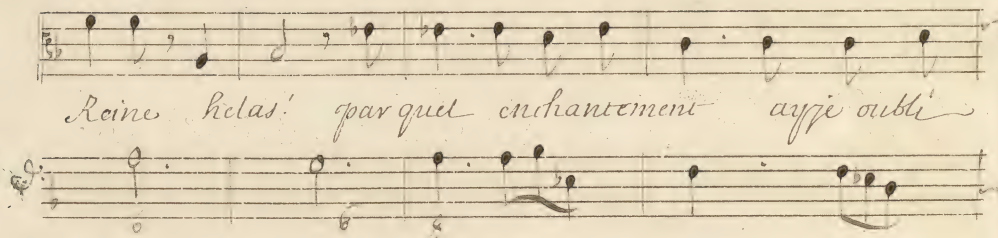 Reine helas! par quel enchantement ay je oublié
6 6 6